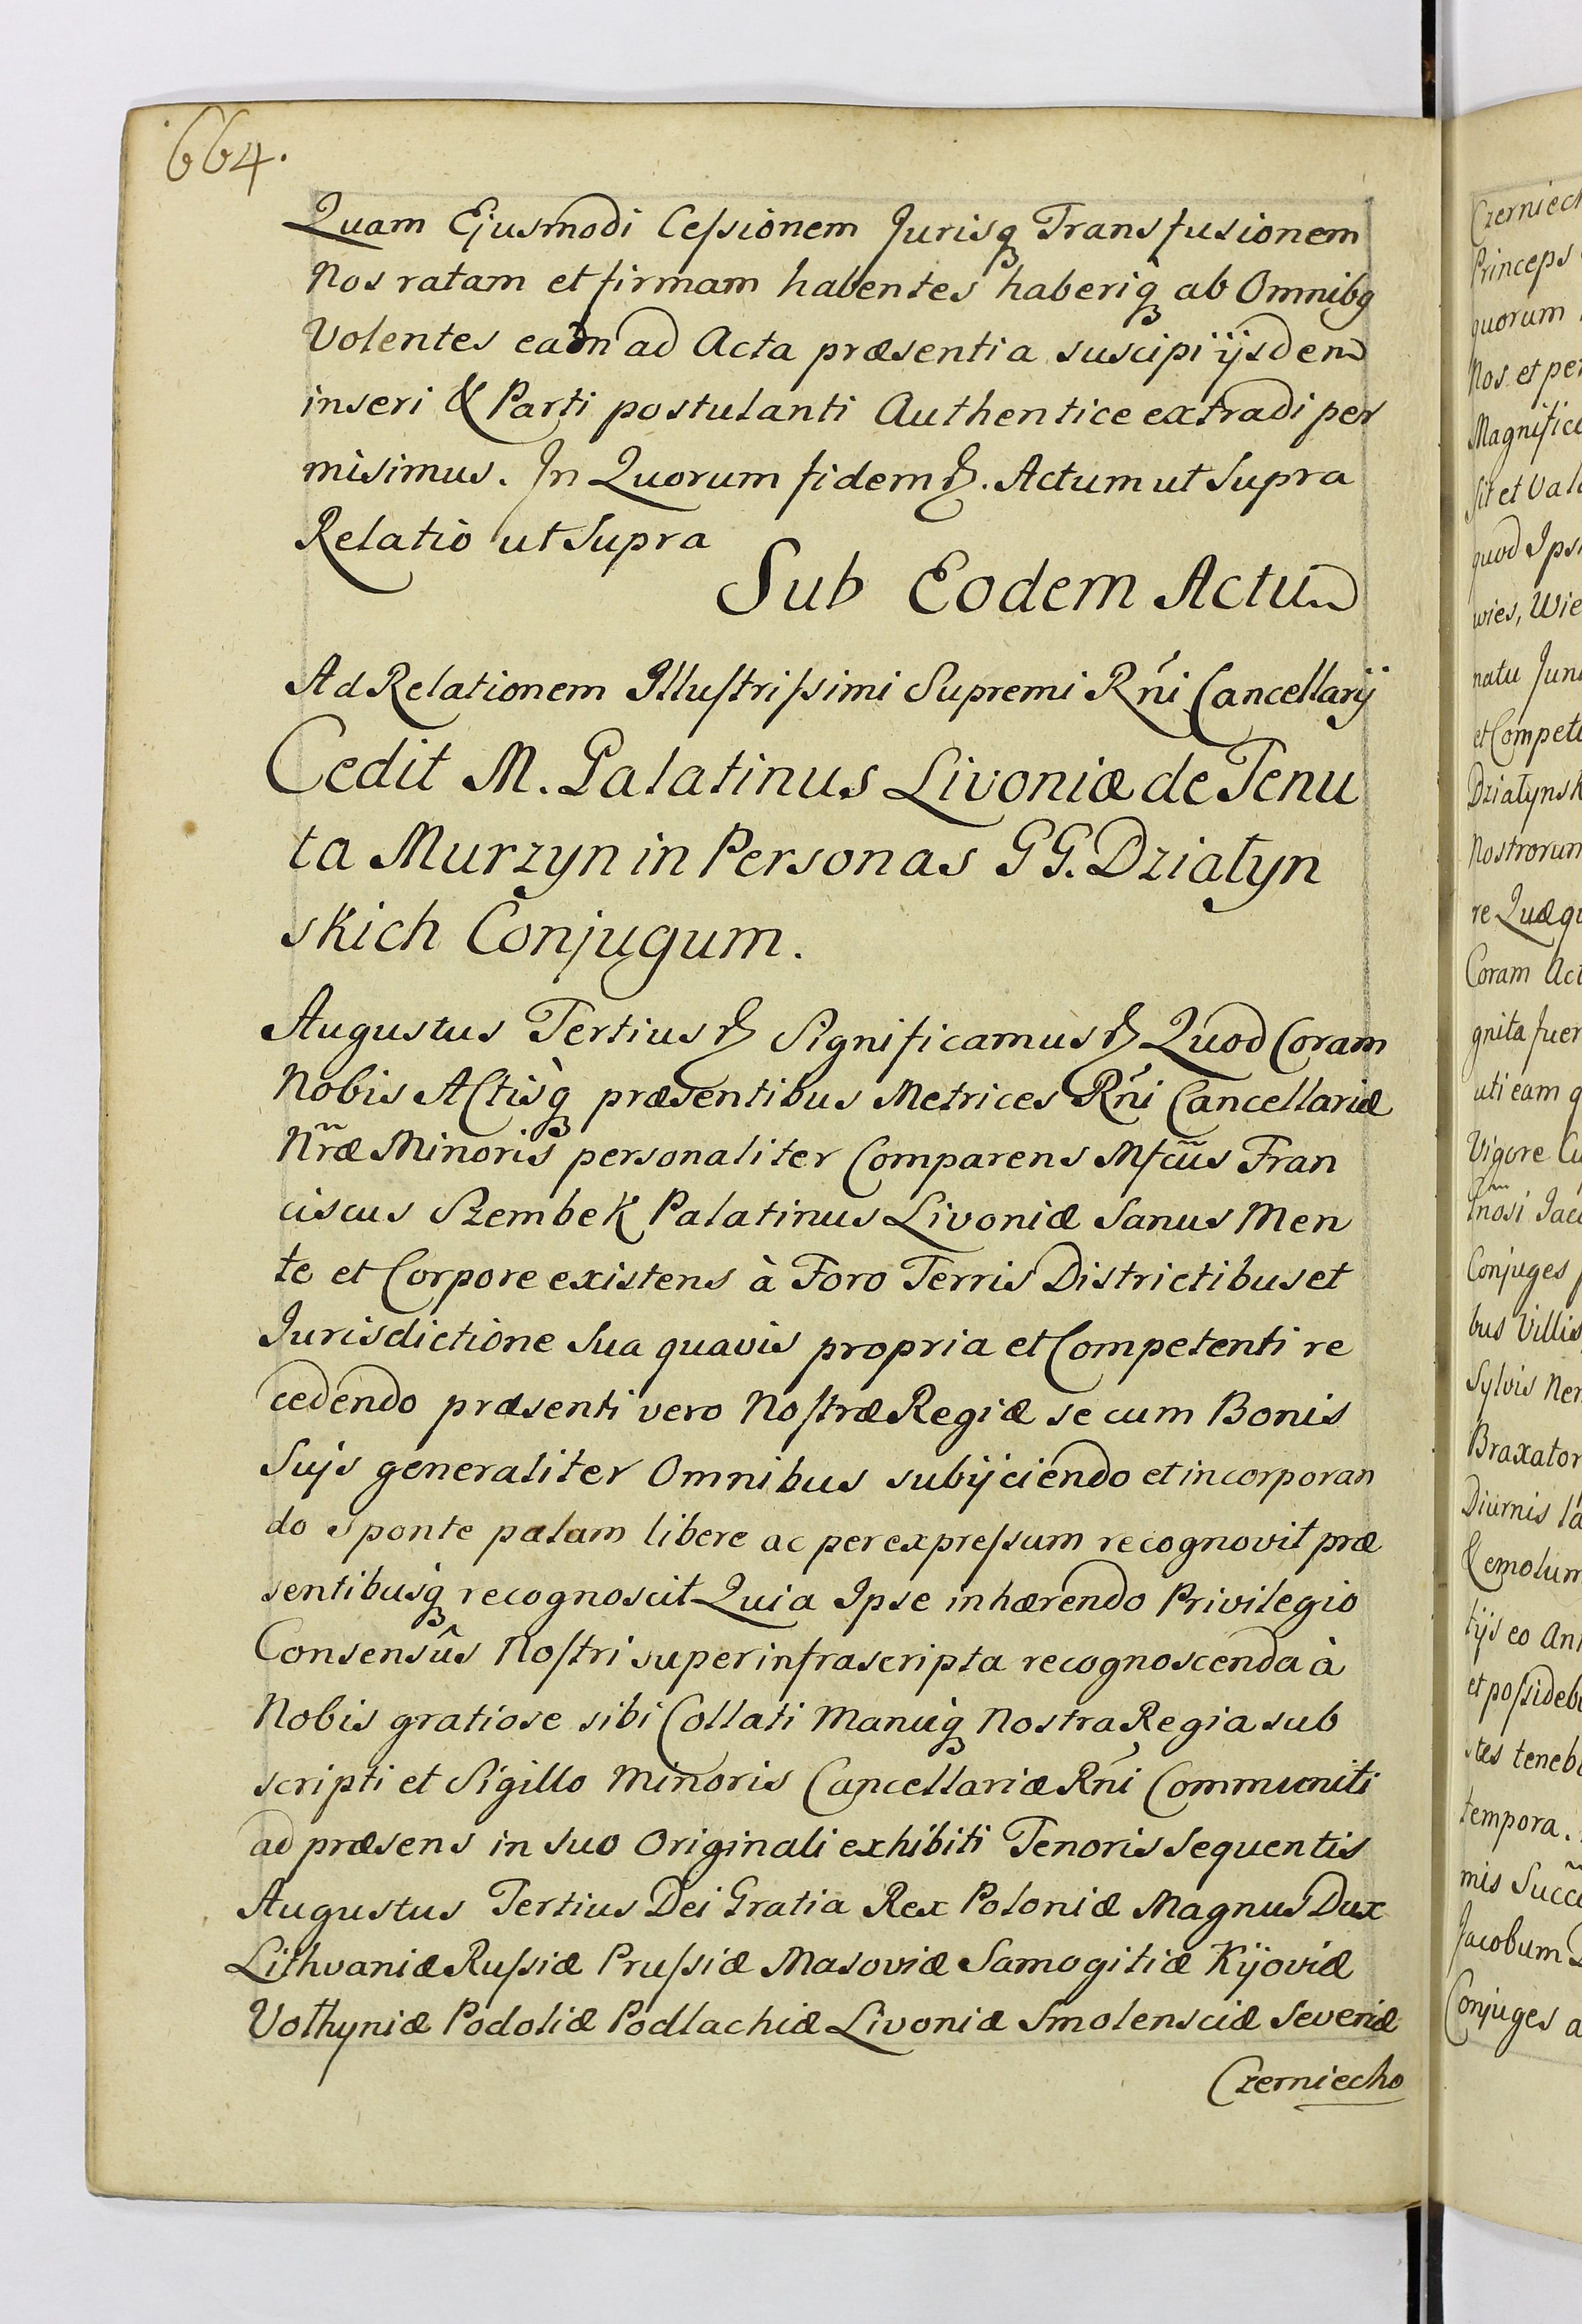 664.
Quam Ejusmodi Ceſsionem Jurisq̃ Transfusionem
Nos ratam et firmam habentes haberiq̃ ab Omnibq
Volentes eadm̃ ad Acta præsentia suscipi ijsdem
inseri & Parti postulanti Authentice extradi per
misimus. In Quorum fidem &. Actum ut Supra
Relatio ut Supra
Sub Eodem Actu
Ad Relationem Illuſtriſsimi Supremi Rñi Cancellarij
Cedit M. Palatinus Livoniæ de Tenu
ta Murzyn in Personas GG. Działyn
skich Conjugum.
Augustus Tertius & Significamus & Quod Coram
Nobis Actisq̃ præsentibus Metrices Rñi Cancellariæ
Nr̃æ Minoris personaliter Comparens Mfcus̃ Fran
ciscus Szembek Palatinus Livoniæ Sanus Men
te et Corpore existens à Foro Terris Districtibus et
Jurisdictione Sua quavis propria et Competenti re
cedendo præsenti vero Noſtræ Regiæ se cum Bonis
Suis generaliter Omnibus subijciendo et incorporan
do sponte palam libere ac per expreſsum recognovit præ
sentibusq̃ recognoscit Quia Ipse inhærendo Privilegio
Consensûs Noſtri super infrascripta recognoscenda à
Nobis gratiose sibi Collati Manuq̃ Nostra Regia sub
scripti et Sigillo Minoris Cancellariæ Rñi Communiti
ad præsens in Suo Originali exhibiti Tenoris Sequentis
Augustus Tertius Dei Gratia Rex Poloniæ Magnus Dux
Lithvaniæ Ruſsiæ Pruſsiæ Masoviæ Samogitiæ Kijoviæ
Volhyniæ Podoliæ Podlachiæ Livoniæ Smolensciæ Severiæ
Czerniecho
Princeps
quorum
Nos et per
Magnific
sit et Val
quod Ips
wies, Wie
natu Jun
et Compet
Działynsk
Nostrorum
re Quæ q
Coram Act
gnita fuer
uti eam q
Vigore
Conjuges
bus Villis
Sylvis Ne
Braxator
Diurnis la
& emolum
tijs eo An
et poſsideb
tes teneb
tempora.
mis Succ
Jacobum
Conjuges a